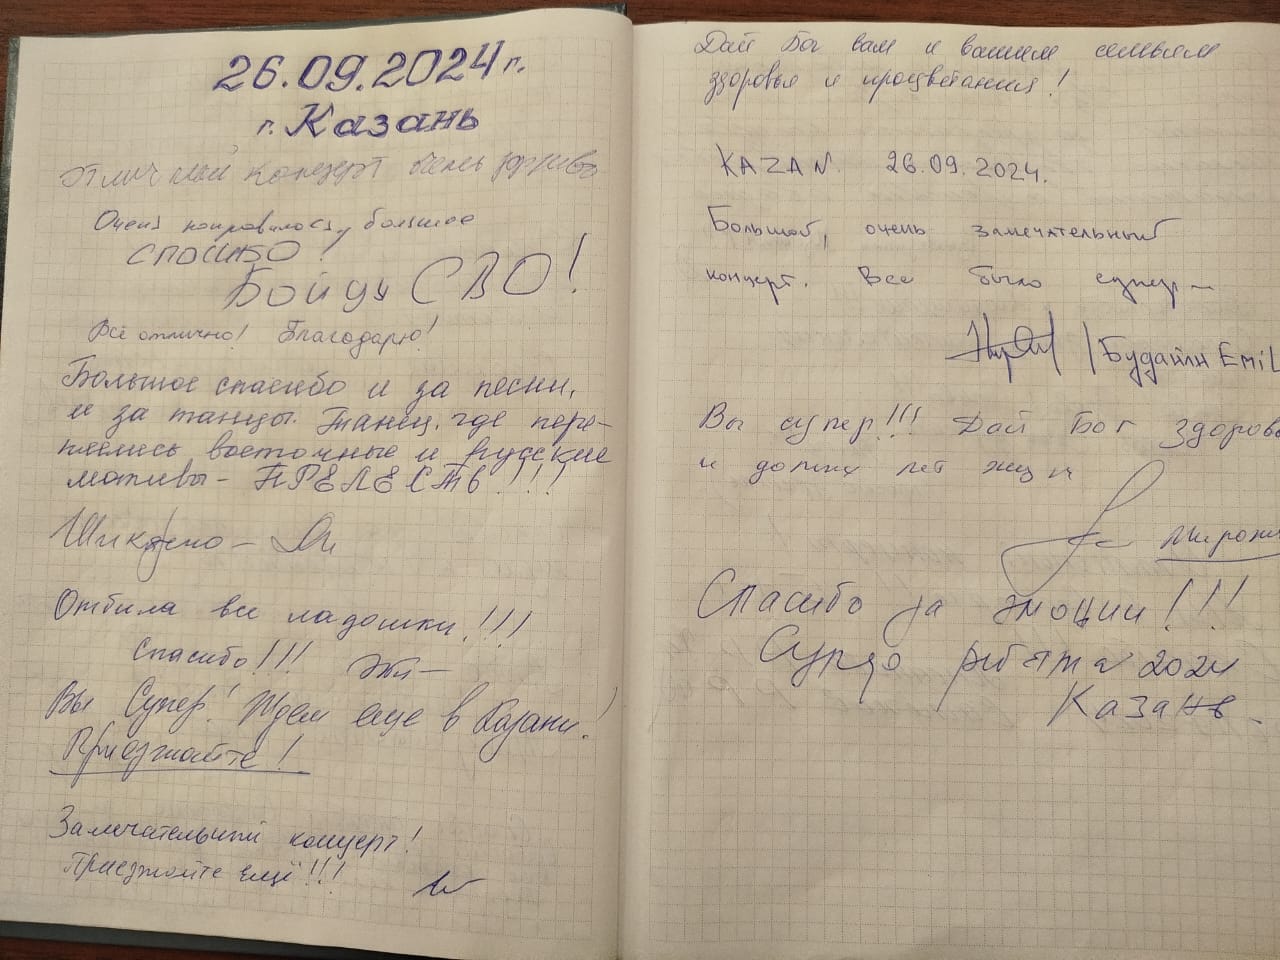 26.09.2024 г.
г. Казань
Отличный концерт очень здорово
Очень понравилось, большое
спасибо!
Бойцу СВО!
Всё отлично! Благодарю!
Большое спасибо и за песни,
и за танцы. Танец, где пере-
плелись восточные и русские
мотивы – ПРЕЛЕСТЬ!!!!
Шикарно –
Отбила все ладошки!!!
Спасибо!!!
Вы Супер! Ждем еще в Казани!
Приезжайте!
Замечательный концерт!
Приезжайте ещё!!!
Дай Бог вам и вашим семьям
здоровья и процветания!
KAZAN. 26.09.2024.
Большой, очень замечательный
концерт. Все было супер
Emil
Вы супер!!! Дай Бог здоровь
и долгих лет жизни
Спасибо за эмоции!!!
ребята 2024
Казань.